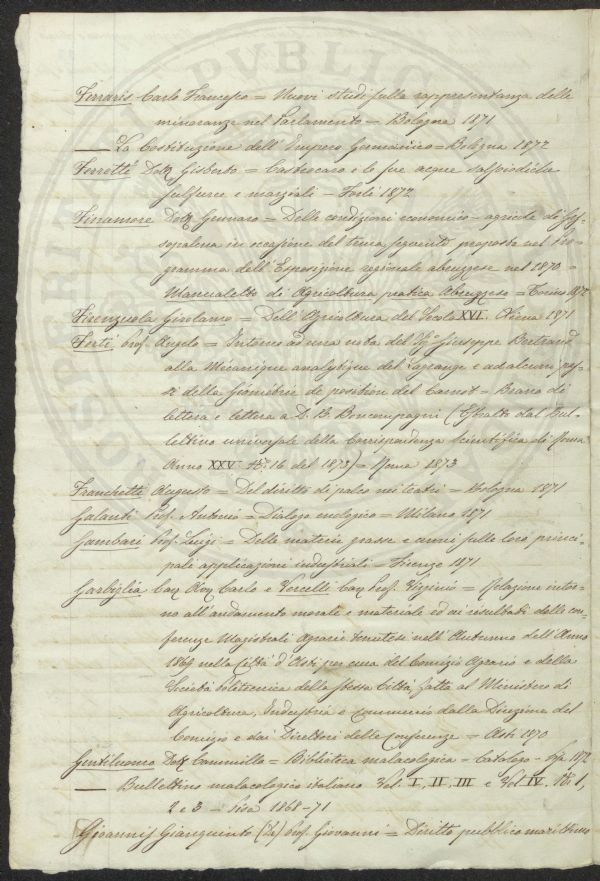 Ferraris Carlo Francesco = Nuovi studi sulla rappresentanza delle
minoranze nel Parlamento = Bologna 1871
— La Costituzione dell'Impero Germanico = Bologna 1872
Ferretti Dott. Gisberto = Castrocaro e le sue acque salsoiodiche
sulfuree e marziali = Forlì 1872
Finamore Dott. Gennaro = Delle condizioni economico-agricole di Ges-
sopalena in occasione del tema seguente proposto nel Pro-
gramma dell'Esposizione regionale abruzzese nel 1870 =
Manualetto di Agricoltura pratica Abruzzese = Torino 1872
Firenzuola Girolamo = Dell'Agricoltura del Secolo XVI. Siena 1871
Forti Prof. Angelo = Intorno ad una nota del Sig. Giuseppe Bertrand
alla Mécanique analytique del Lagrange e ad alcuni pas-
si della Géométrie de position del Carnot = Brano di
lettera e lettera a D. B. Boncompagni (Estratto dal Bul-
lettino universale della Corrispondenza Scientifica di Roma
Anno XXV N. 16 del 1873) = Roma 1873
Franchetti Augusto = Del diritto di palco nei teatri = Bologna 1871
Galanti Prof. Antonio = Dialogo enologico = Milano 1871
Gambari Prof. Luigi = Delle materie grasse e cenni sulle loro princi-
pali applicazioni industriali = Firenze 1871
Garbiglia Cav. Avv. Carlo e Vercelli Cav. Prof. Virginio = Relazione intor-
no all'andamento morale e materiale ed ai risultati delle con-
ferenze Magistrali Agrarie tenutesi nell'Autunno dell'Anno
1869 nella Città d'Asti per cura del Comizio Agrario e della
Società Politecnica della stessa Città fatta al Ministero di
Agricoltura, Industria e Commercio dalla Direzione del
Comizio e dai Direttori delle Conferenze = Asti 1870
Gentiluomo Dott. Cammillo = Biblioteca malacologica = Catalogo - 1872
— Bullettino malacologico italiano Vol. I, II, III e Vol. IV. Ni. 1,
2 e 3 = Pisa 1868-71
Gioannis Gianquinto (de) Prof. Giovanni = Diritto pubblico marittimo